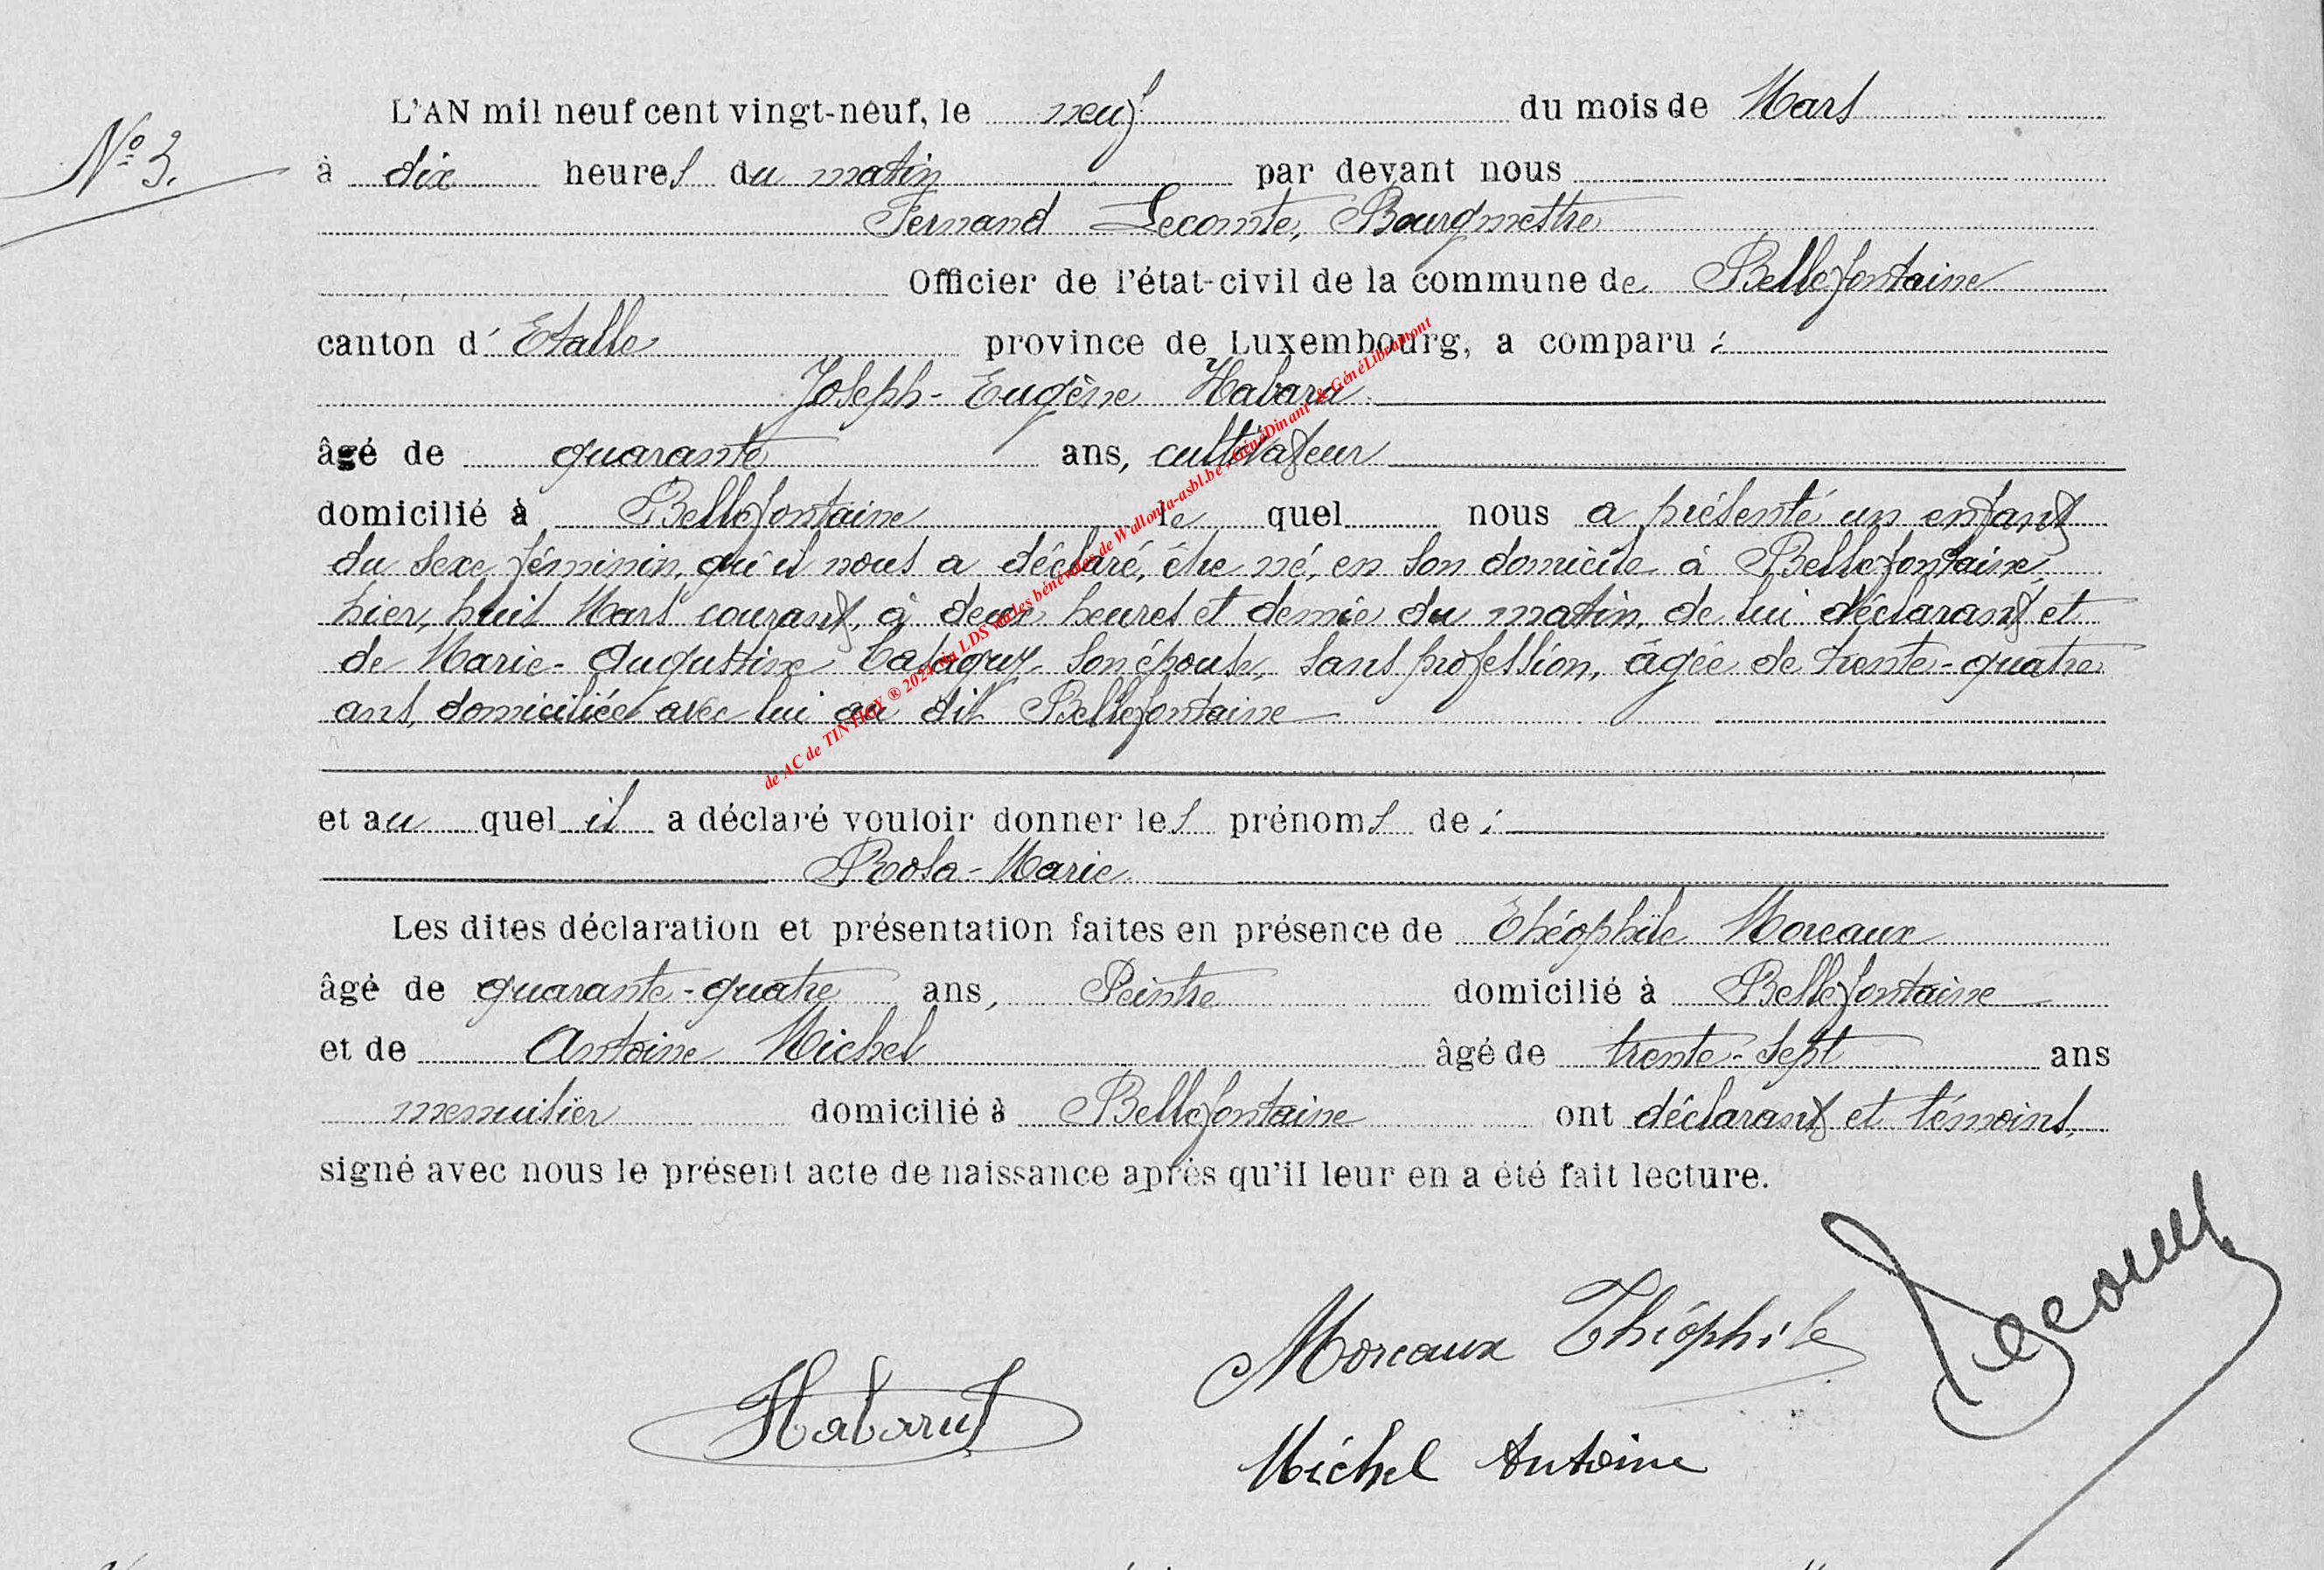 L'AN mil neuf cent vingt-neuf, le neuf du mois de Mars
N° 3.
à dix heures du matin par devant nous
Fernand Lecomte, Bourgmestre
Officier de l'état-civil de la commune de Bellefontaine
canton d' Etalle province de Luxembourg, a comparu :
Joseph-Eugène Habaru
âgé de quarante ans, cultivateur
domicilié à Bellefontaine le quel nous a présenté un enfant
du sexe féminin, qu'il nous a déclaré, être né, en son domicile à Bellefontaine,
hier, huit Mars courant, à deux heures et demie du matin, de lui déclarant et
de Marie-Augustine son épouse, sans profession, âgée de trente-quatre
ans, domiciliée avec lui au dit Bellefontaine
et au quel il a déclaré vouloir donner les prénoms de :
Rosa-Marie
Les dites déclaration et présentation faites en présence de Théophile Moreaux
âgé de quarante-quatre ans, Peintre domicilié à Bellefontaine
et de Antoine Michel âgé de trente-sept ans
menuisier domicilié à Bellefontaine ont déclarant et témoins,
signé avec nous le présent acte de naissance après qu'il leur en a été fait lecture.
Lecomte
Moreaux Théophile
Habaru J
Michel Antoine
de AC de TINTIGNY ® 2024 via LDS par les bénévoles de Wallonia-asbl.be , GénéDinant & GénéLibramont